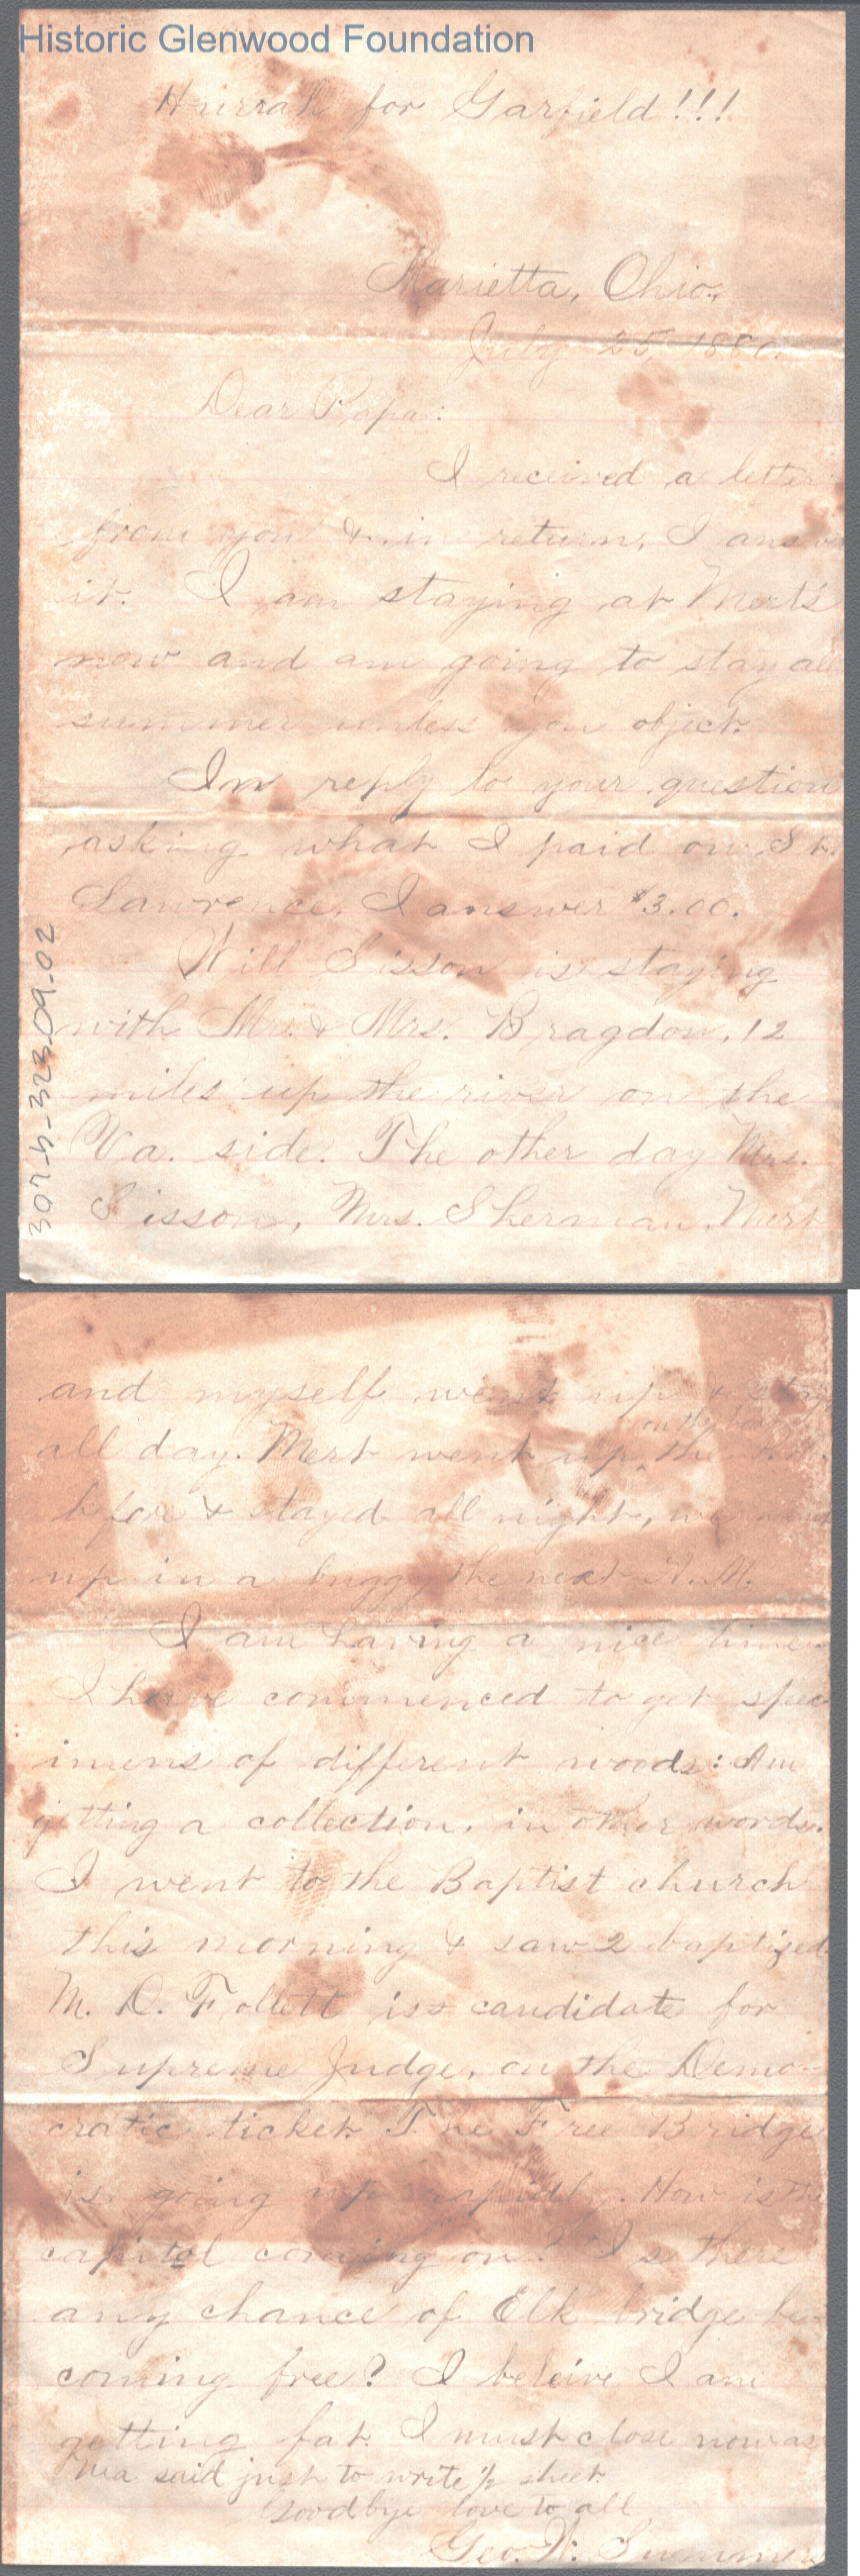 Historic Glenwood Foundation
Hurrah for Garfield!!!
Marietta, Ohio,
July 25, 1880.
Dear Papa:
I received a letter
from you & in return, I answer
it. I am staying at Mert's
now and am going to stay all
summer unless you object.
In reply to your question
asking what I paid on St.
Lawrence, I answer $3.00.
Will Sisson is staying
with Mr. & Mrs. Bragdon, 12
miles up the river on the
Va. side. The other day Mrs.
Sisson, Mrs. Sherman, Mert
307-h-323-09-02
and myself went up & stay
on the
all day. Mert went up the
before & stayed all night, we
up in a buggy the next A.M.
I am having a nice time.
I have commenced to get spec
imens of different woods: Am
getting a collection, in other words.
I went to the Baptist church
this morning & saw 2 baptized
M. D. Follett is candidate for
Supreme Judge, on the Demo-
cratic ticket. The Free Bridge
is going up rapidly. How is the
capitol coming on? Is there
any chance of Elk bridge be-
coming free? I beleive I am
getting fat. I must close now as
Ma said just to write ½ sheet.
Goodbye love to all
Geo. W. Summers